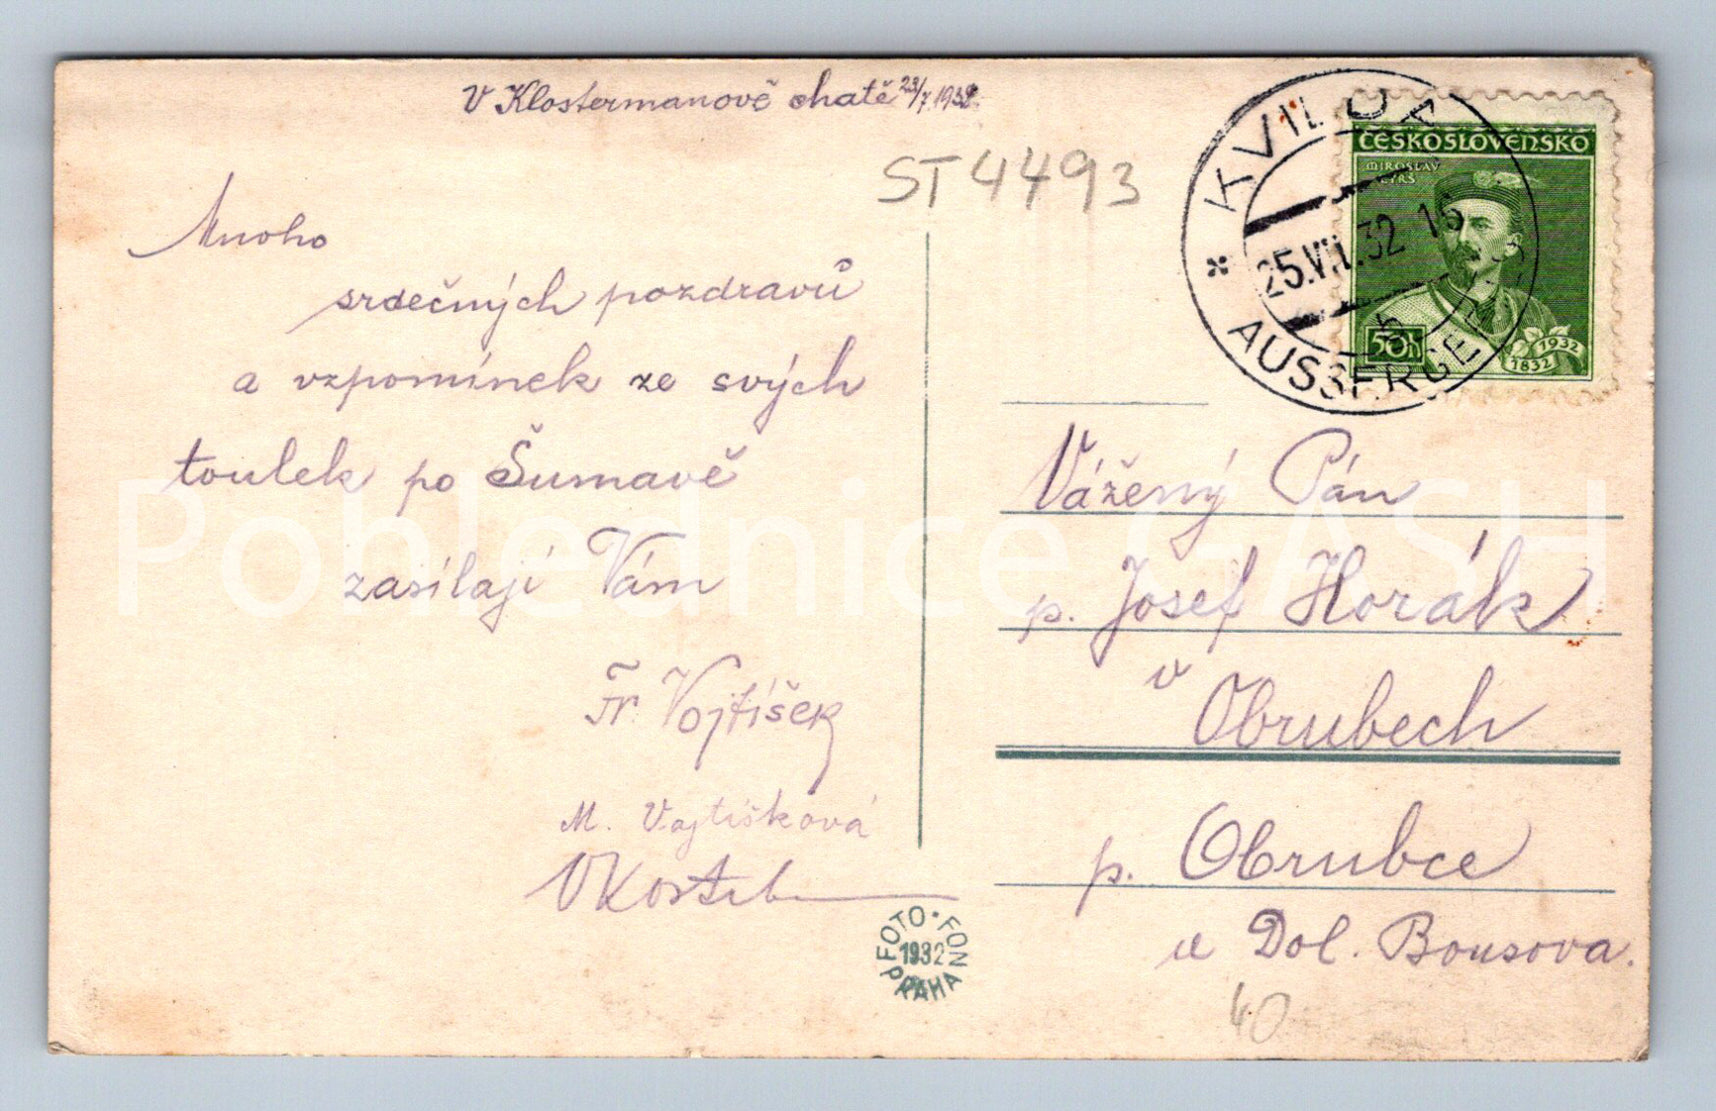 V Klostermanově chatě 23/7 1932.
ST 4493
Mnoho
srdečných pozdravů
a vzpomínek ze svých
toulek po Šumavě
zasílají Vám
Fr. Vojtíšek
M. Vojtíšková
KVILDA
25.VII.32 16
AUSSERGEFILD
ČESKOSLOVENSKO
MIROSLAV
TYRŠ
50h
1832 1932
Vážený Pán
p. Josef Horák
v
Obrubech
p. Obrubce
u Dol. Bousova.
40
FOTO · FON
1932
PRAHA
Pohlednice GASH